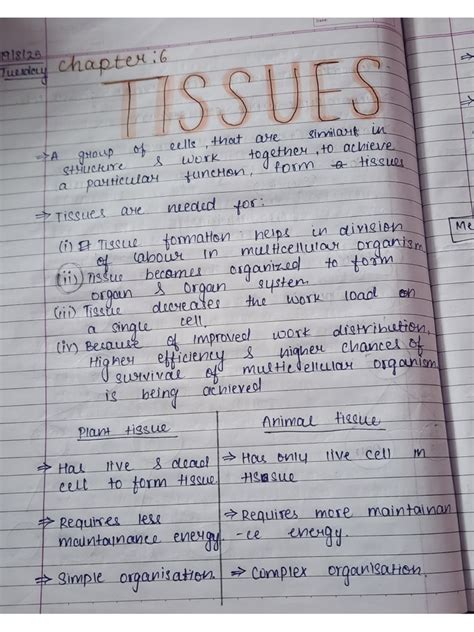 19/8/25
Tuesday
Chapter:6
TISSUES
⇒A group of cells, that are similar in
structure & work together, to achieve
a particular function, form a tissues
⇒ Tissues are needed for:
(i) Tissue formation helps in division
of labour in multicellular organism
(ii) Tissue becomes organized to form
organ & organ system.
(iii) Tissue decreases the work load on
a single cell.
(iv) Because of improved work distribution,
Higher efficiency & higher chances of
survival of multicellular organism
is being achieved
Plant tissue
Animal tissue
⇒ Has live & dead
cell to form tissue
⇒ Has only live cell in
tissue
⇒ Requires less
maintainance energy.
⇒ Requires more maintainan
-ce energy.
⇒ Simple organisation.
⇒ Complex organisation.
Me